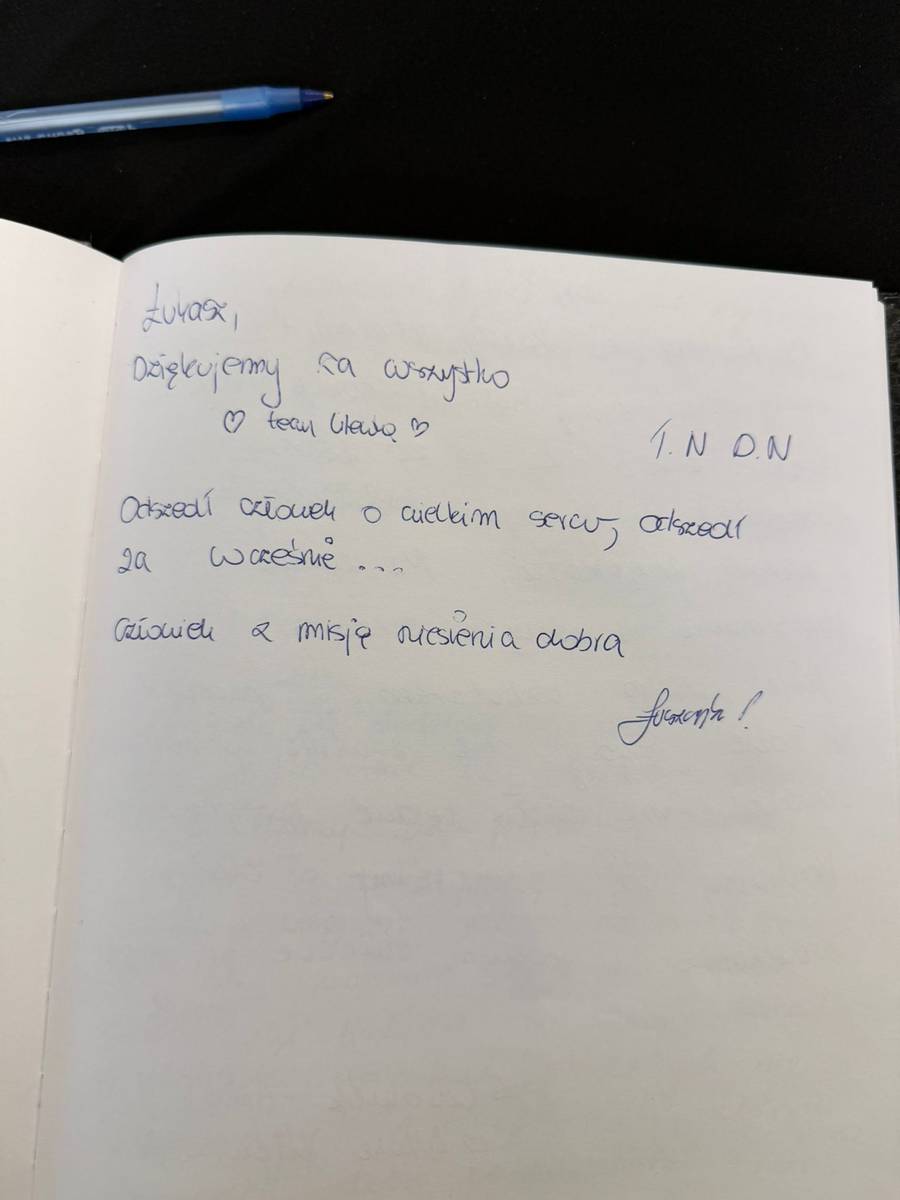 Łukasz,
Dziękujemy za wszystko
♡ team ♡
T.N D.N
Odszedł człowiek o wielkim sercu, odszedł
za wcześnie ...
Człowiek z misją niesienia dobra